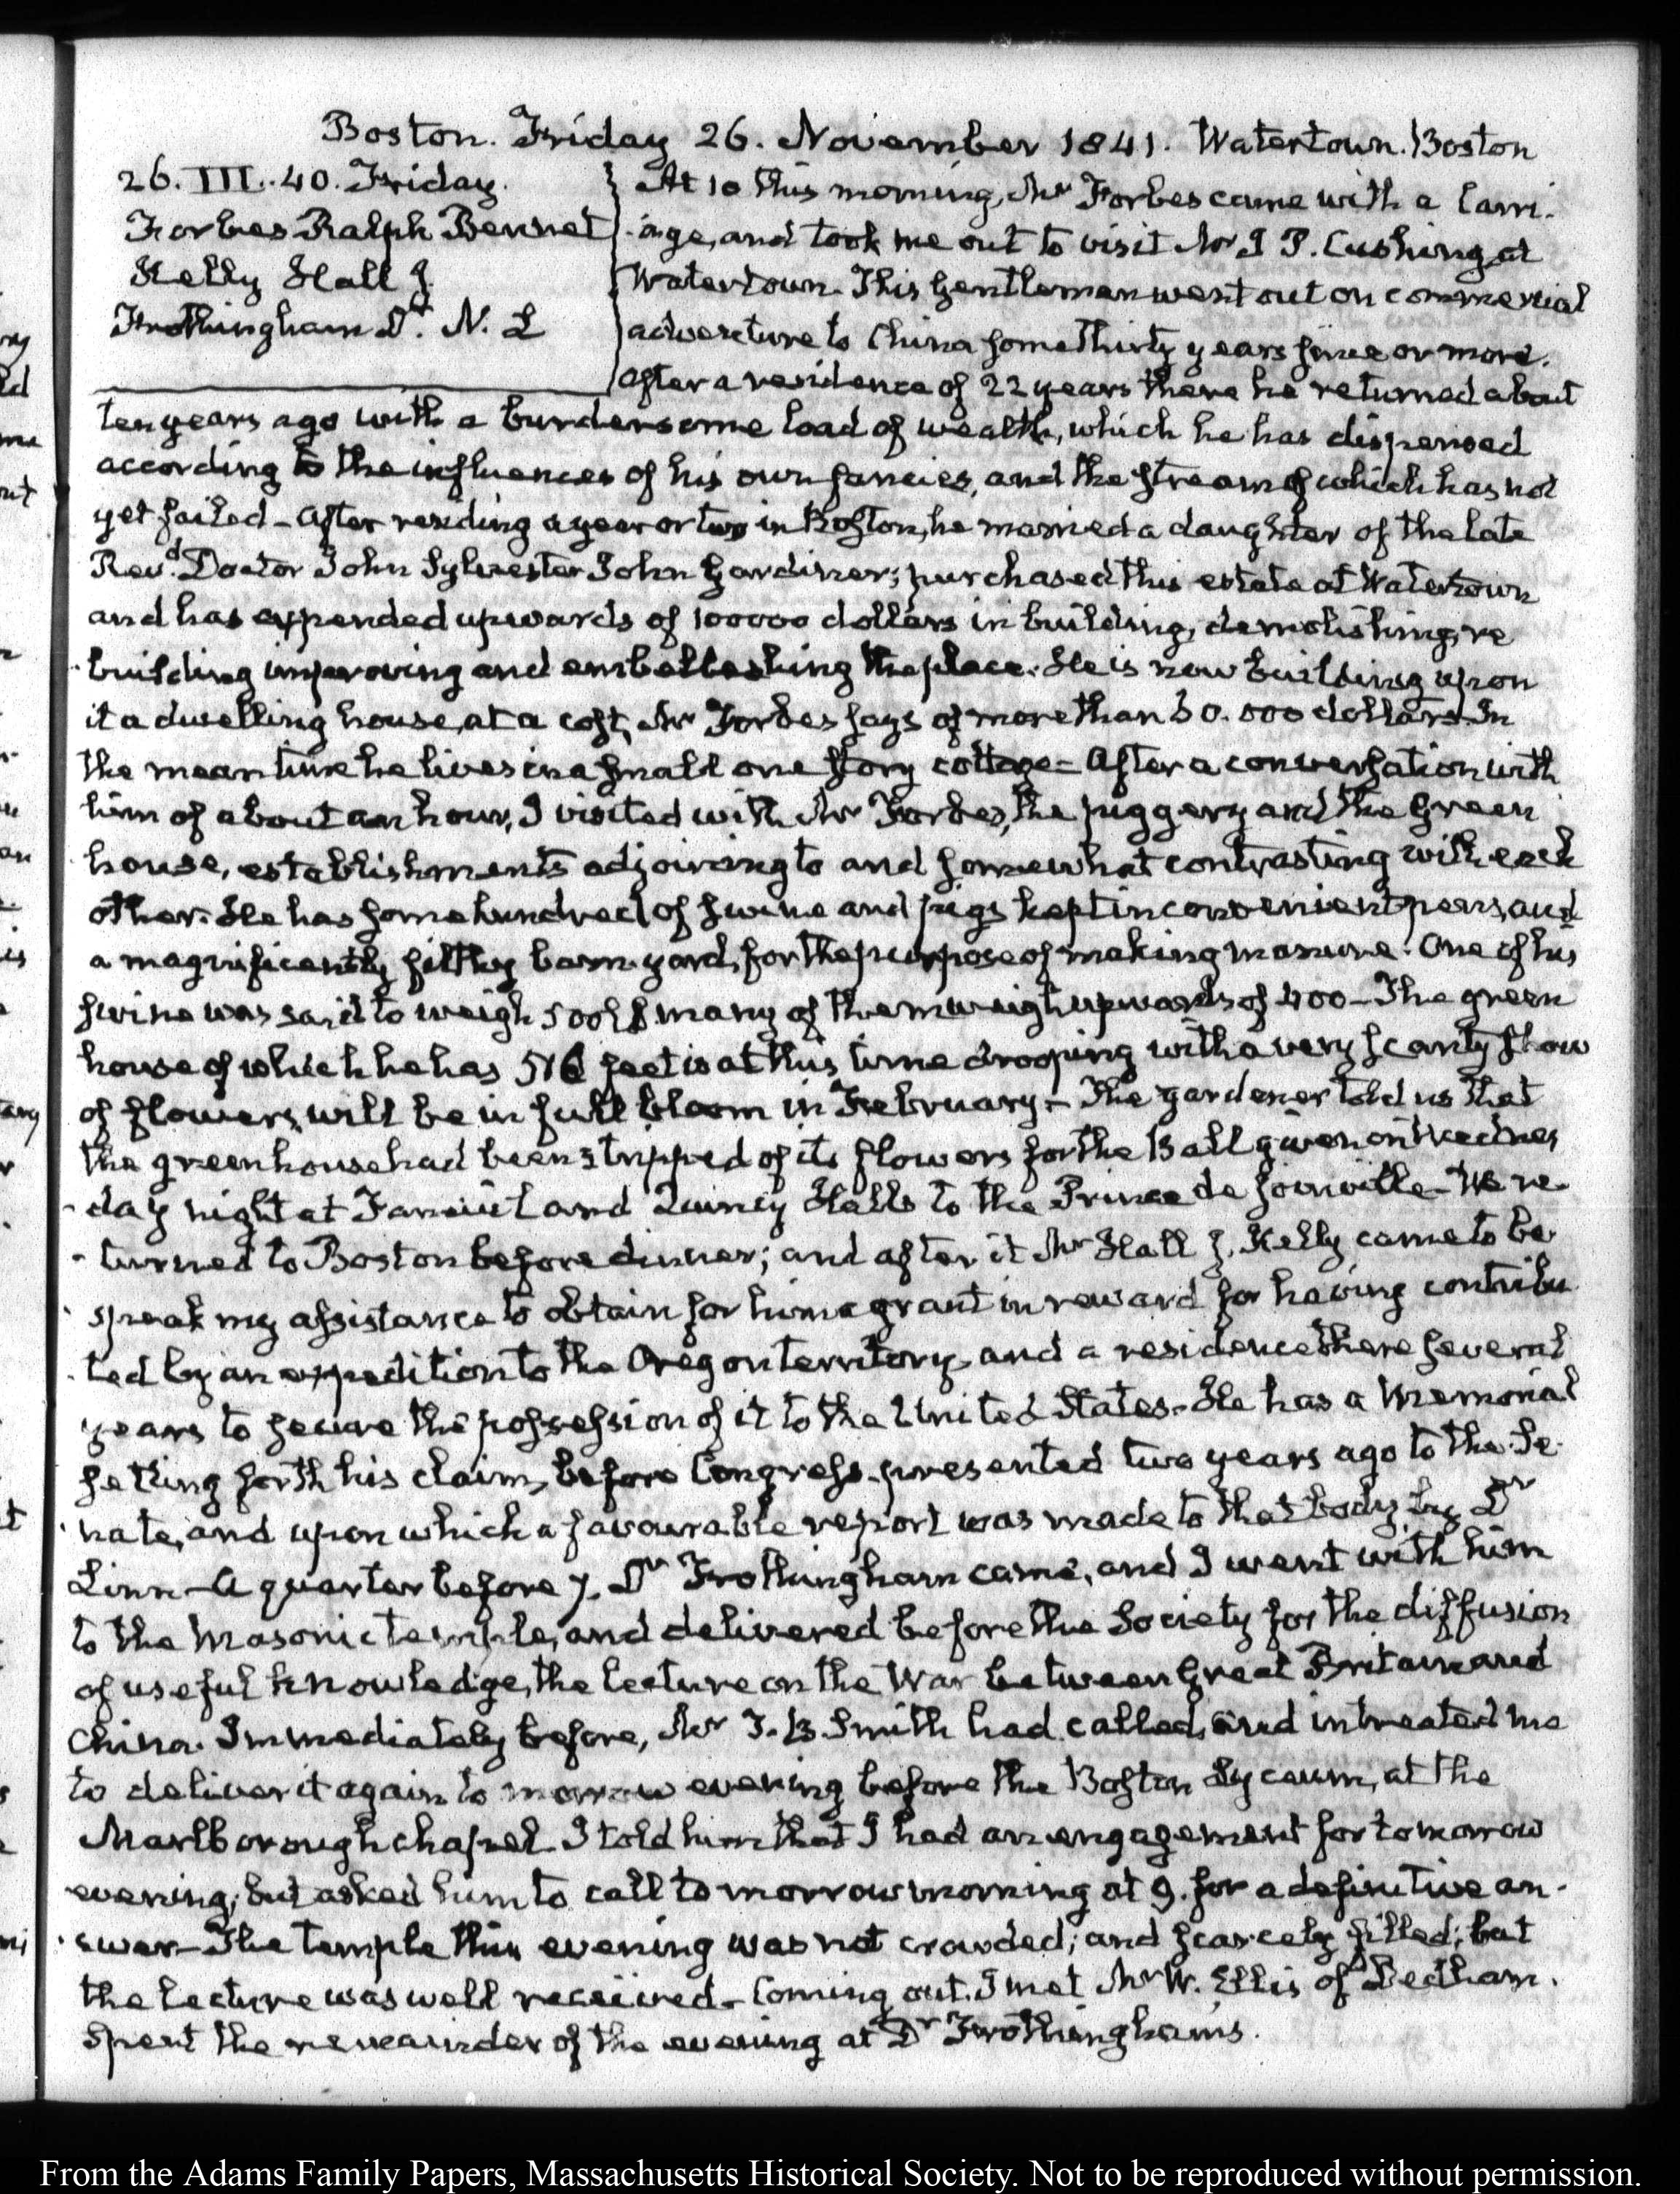 Boston. Friday 26. November 1841. Watertown. Boston
26. III. 40. Friday.
Forbes Ralph Bennet
Kelly Hall J.
Frothingham Dr. N. L
At 10 this morning, Mr Forbes came with a Carri-
-age, and took me out to visit Mr J P. Cushing, at
Watertown. This Gentleman went out on commercial
adventure to China some thirty years since or more.
After a residence of 22 years there he returned about
ten years ago with a burdensome load of wealth, which he has dispensed
according to the influences of his own fancies, and the stream of which has not
yet failed – After residing a year or two in Boston, he married a daughter of the late
Revd. Doctor John Sylvester John Gardiner; purchased this estate at Watertown
and has expended upwards of 100000 dollars in building, demolishing, re
-building improving and embellishing the place. He is now building upon
it a dwelling house, at a cost, Mr Forbes says of more than 50.000 dollars. In
the mean time he lives in a small one story cottage – After a conversation with
him of about an hour, I visited with Mr Forbes, the piggery and the Green
house, establishments adjoining to and somewhat contrasting with each
other. He has some hundred of swine and pigs kept in convenient pens, and
a magnificently filthy barn-yard, for the purpose of making manure. One of his
swine was said to weigh 500 & many of them weigh upwards of 400 – The green
house of which he has 516 feet is at this time drooping with a very scanty show
of flowers, will be in full bloom in February – The gardener told us that
the greenhouse had been stripped of its flowers for the Ball given on Wednes
-day night at Faneuil and Quincy Halls to the Prince de Joinville – We re-
-turned to Boston before dinner; and after it Mr Hall J. Kelly came to be
-speak my assistance to obtain for him a grant in reward for having contribu
-ted by an expedition to the Oregon territory, and a residence there several
years to secure the possession of it to the United States. He has a Memorial
setting forth his claim, before Congress, presented two years ago to the Se-
-nate, and upon which a favourable report was made to that body by Dr
Linn – A quarter before 7. Dr Frothingham came, and I went with him
to the Masonic temple, and delivered before the Society for the diffusion
of useful knowledge, the lecture on the War between Great Britain and
China. Immediately before, Mr J. B. Smith had called, and intreated me
to deliver it again to morrow evening before the Boston Lyceum, at the
Marlborough chapel. I told him that I had an engagement for tomorrow
evening; but asked him to call to morrow morning at 9. for a definitive an-
-swer – The temple this evening was not crowded; and scarcely filled; but
the lecture was well received – Coming out, I met Mr W. Ellis of Dedham.
Spent the remainder of the evening at Dr Frothingham's.
From the Adams Family Papers, Massachusetts Historical Society. Not to be reproduced without permission.